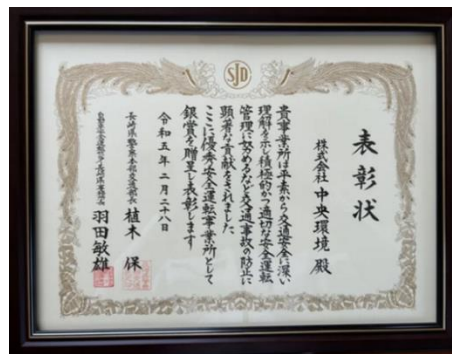 SJD
表彰状
株式会社 中央環境 殿
貴事業所は平素から交通安全に深い
理解を示し積極的かつ適切な安全運転
管理に努めるなど交通事故の防止に
顕著な貢献をされました
ここに優秀安全運転事業所として
銀賞を贈呈し表彰します
令和五年二月二十八日
長崎県警察本部交通部長 植木 保
自動車安全運転センター長崎県事務所長 羽田敏雄